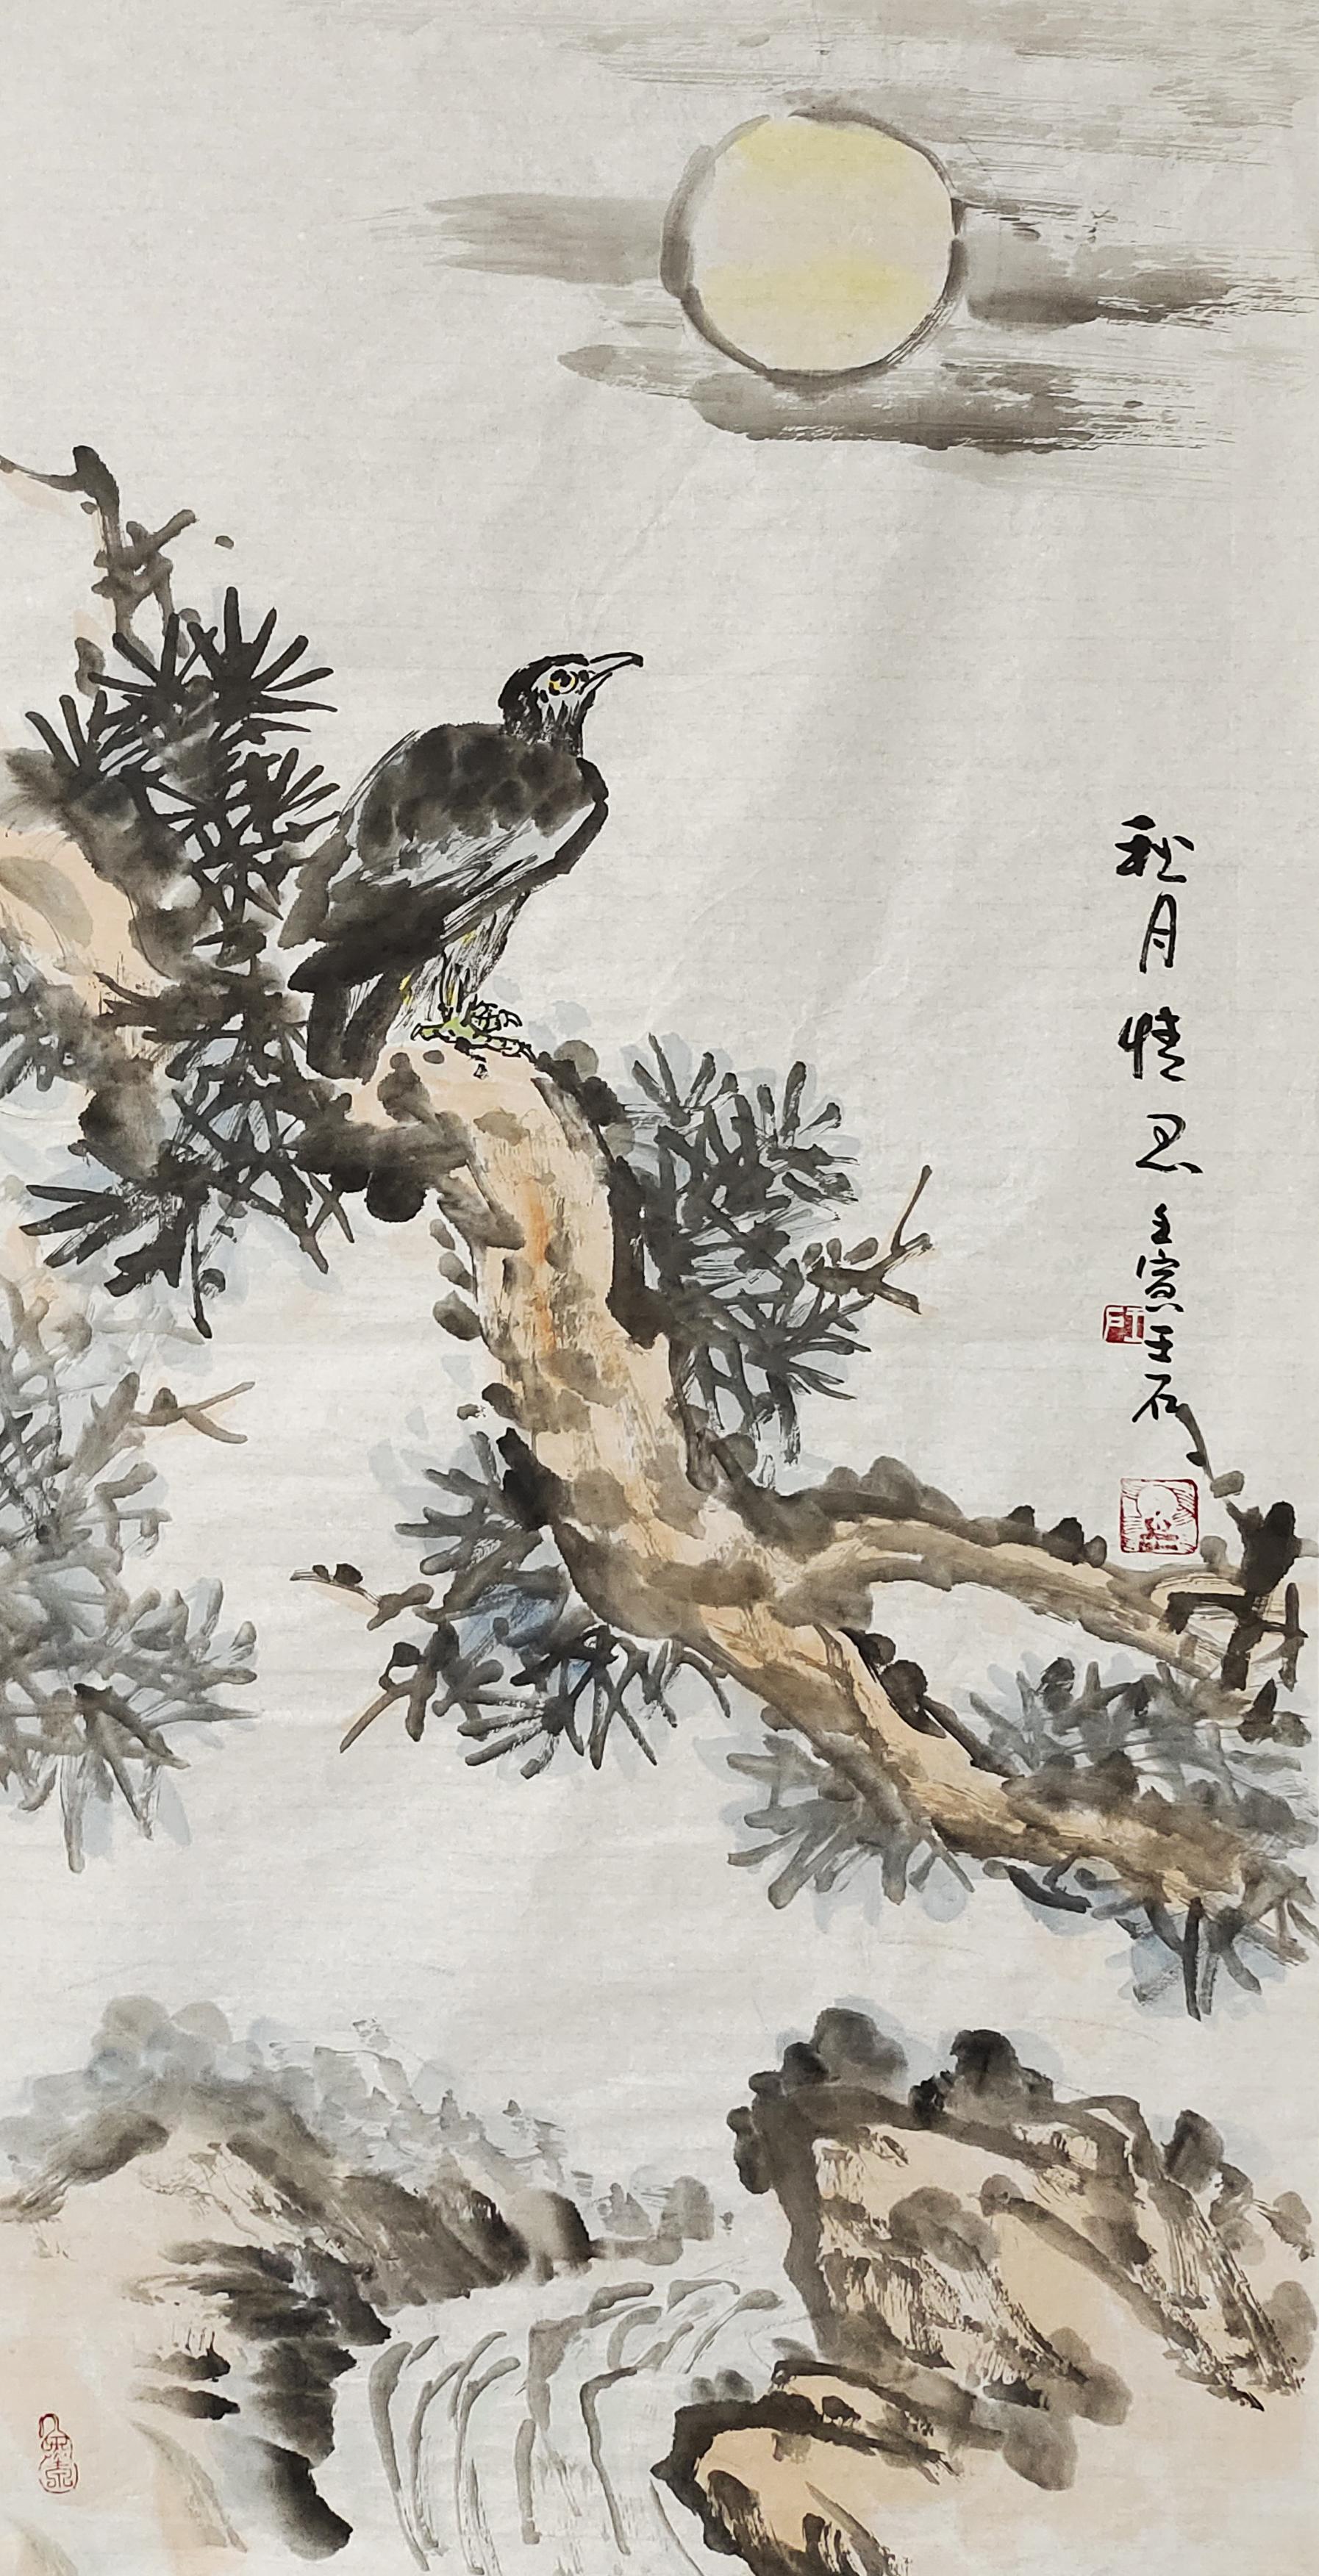 秋月情思 壬寅 王石